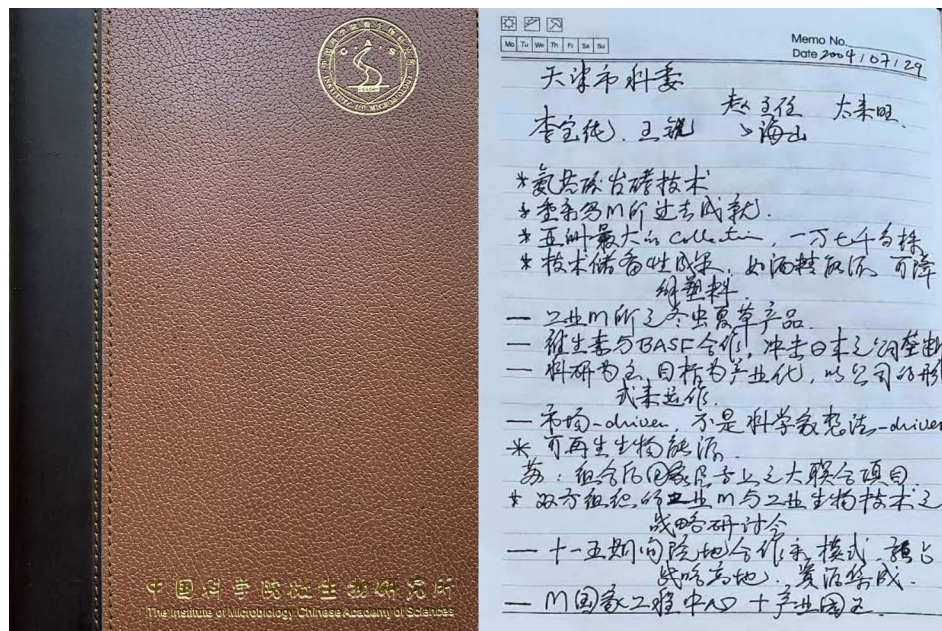 INSTITUTE OF MICROBIOLOGY
中国科学院微生物研究所
The Institute of Microbiology Chinese Academy of Sciences
Mo Tu We Th Fr Sa Su
Memo No.
Date 2004/07/29
天津市科委
赵主任
李宝纯、王锐
海山
*氨基酸台糖技术
*重新为M所过去成就.
*亚洲最大的Collection, 一万七千多株
*技术储备性成果, 如酒精能源、可降
解塑料.
— 工业M所之冬虫夏草产品.
— 维生素与BASF合作, 冲击日本之公司垄断
— 科研为主, 目标为产业化, 以公司的形
式来运作.
— 市场-driven, 不是科学家想法-driven
* 可再生生物能源.
苏: 组合后国家层次上之大联合项目.
* 双方组织的工业M与工业生物技术之
战略研讨会
— 十一五期间院地合作新模式. 预占
战略高地. 资源集成.
— M国家工程中心+产业园区.